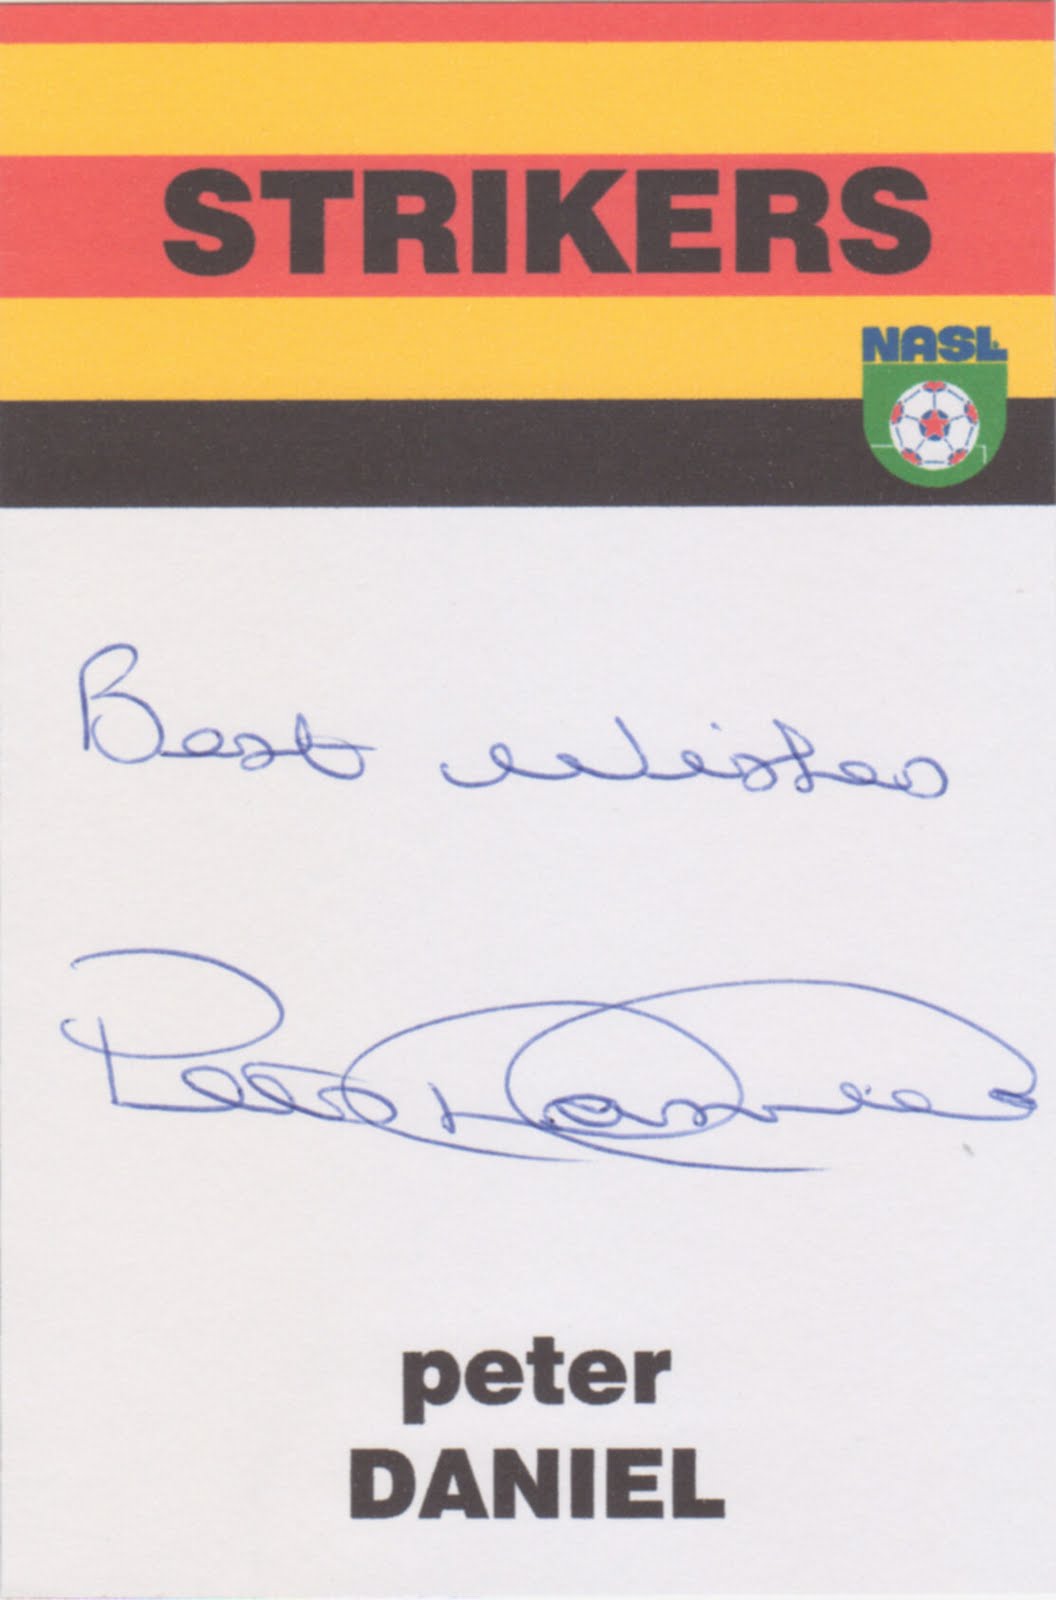 STRIKERS
NASL
Best Wishes
Peter Daniel
peter
DANIEL